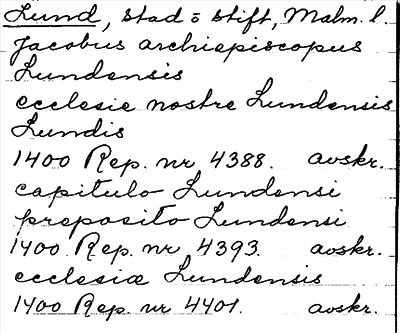 Lund, stad o stift, Malm. l.
Jacobus archiepiscopus
Lundensis
ecclesie nostre Lundensis
Lundis
1400 Rep. nr 4388. avskr.
capitulo Lundensi
preposito Lundensi
1400 Rep. nr 4393. avskr.
ecclesiæ Lundensis
1400 Rep. nr 4401. avskr.